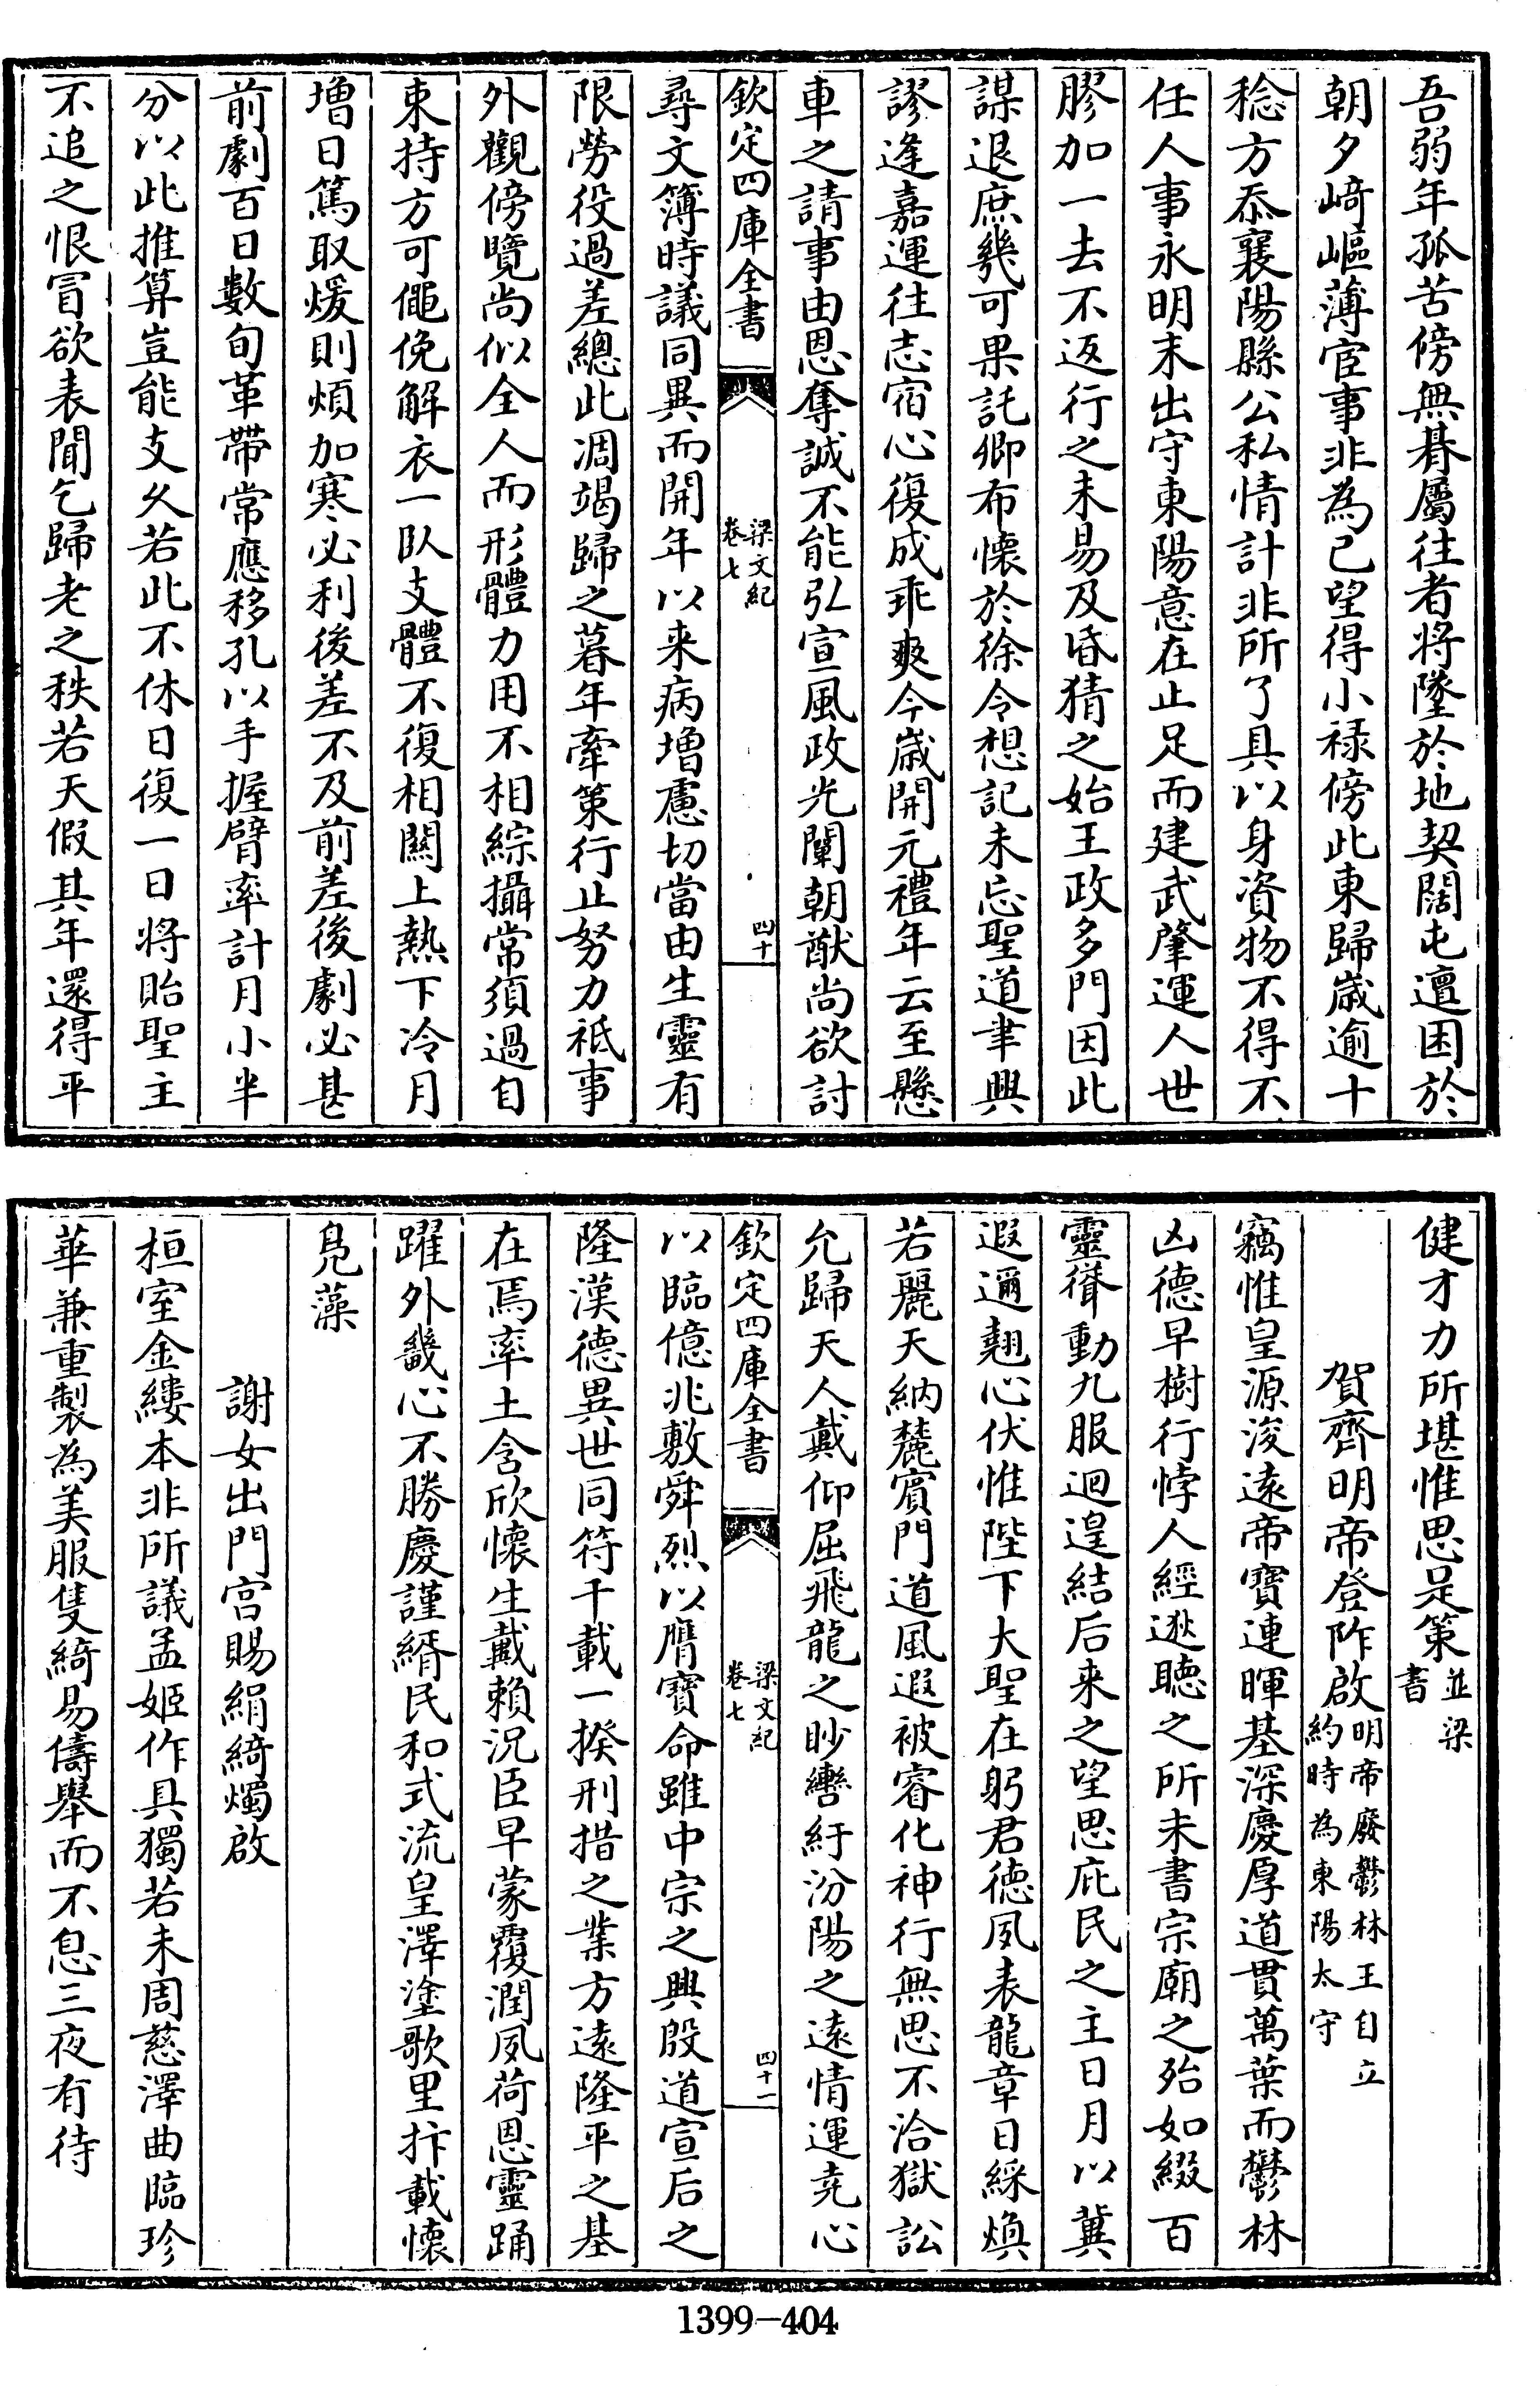 吾弱年孤苦傍無朞屬往者將墜於地契闊屯邅困於
朝夕崎嶇薄宦事非為己望得小祿傍此東歸歲逾十
稔方忝襄陽縣公私情計非所了具以身資物不得不
任人事永明末出守東陽意在止足而建武肇運人世
膠加一去不返行之未易及昏猜之始王政多門因此
謀退庶幾可果託卿布懷於徐令想記未忘聖道聿興
謬逢嘉運往志宿心復成乖爽今歲開元禮年云至懸
車之請事由恩奪誠不能弘宣風政光闡朝猷尚欲討
欽定四庫全書
梁文紀
卷七
四十
尋文簿時議同異而開年以来病增慮切當由生靈有
限勞役過差總此凋竭歸之暮年牽策行止努力祗事
外觀傍覽尚似全人而形體力用不相綜攝常須過自
束持方可僶俛解衣一臥支體不復相關上熱下冷月
增日篤取煖則煩加寒必利後差不及前差後劇必甚
前劇百日數旬革帶常應移孔以手握臂率計月小半
分以此推算豈能支久若此不休日復一日將貽聖主
不追之恨冒欲表聞乞歸老之秩若天假其年還得平
健才力所堪惟思是策並梁
書
賀齊明帝登阼啟明帝廢鬱林王自立
約時為東陽太守
竊惟皇源浚遠帝寶連暉基深慶厚道貫萬葉而鬱林
凶德早樹行悖人經逖聽之所未書宗廟之殆如綴百
靈聳動九服迴遑結后来之望思庇民之主日月以冀
遐邇翹心伏惟陛下大聖在躬君德夙表龍章日綵煥
若麗天納麓賓門道風遐被睿化神行無思不洽獄訟
允歸天人戴仰屈飛龍之眇轡紆汾陽之遠情運堯心
欽定四庫全書
梁文紀
卷七
四十一
以臨億兆敷舜烈以膺寶命雖中宗之興殷道宣后之
隆漢德異世同符千載一揆刑措之業方遠隆平之基
在焉率土含欣懷生戴賴況臣早蒙覆潤夙荷恩靈踊
躍外畿心不勝慶謹緝民和式流皇澤塗歌里抃載懷
鳧藻
謝女出門宮賜絹綺燭啟
桓室金縷本非所議孟姬作具獨若未周慈澤曲臨珍
華兼重製為美服隻綺易儔舉而不息三夜有待
1399-404